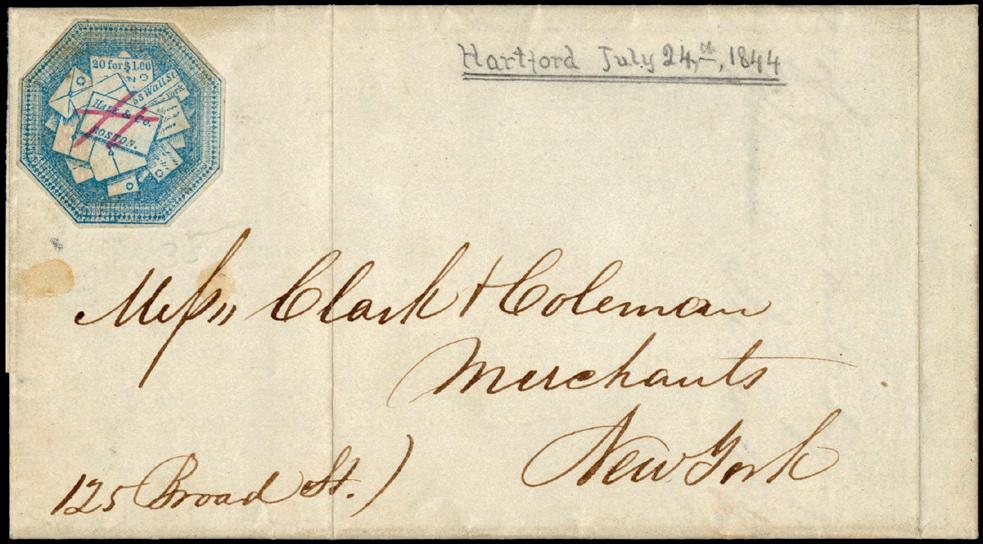 Hartford July 24,th, 1844
20 for $1.00
55 Wall St.
York
Hale & Co.
BOSTON.
H
35
Messrs Clark & Coleman
Merchants
New York
125 Broad St.)